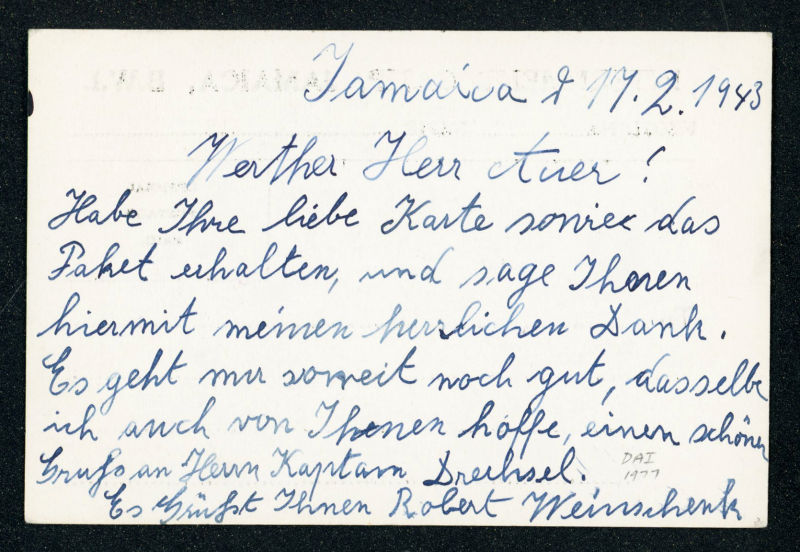 Jamaica d 17.2.1943
Werther Herr Auer!
Habe Ihre liebe Karte sowie das
Paket erhalten, und sage Ihnen
hiermit meinen herzlichen Dank.
Es geht mir soweit noch gut, dasselbe
ich auch von Ihnen hoffe, einen schönen
Gruß an Herrn Kapitän Drechsel.
Es Grüßt Ihnen Robert Weinschenk
DAI
1977